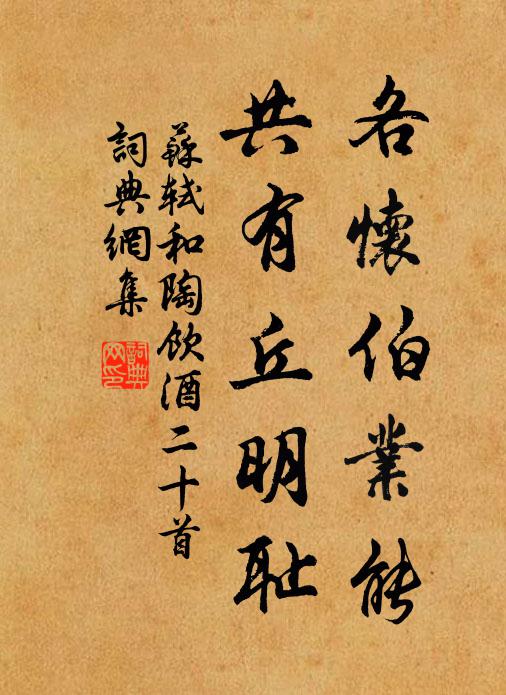 各懷伯業能
共有丘明耻
蘇軾和陶飲酒二十首
詞典網集
詞典網印